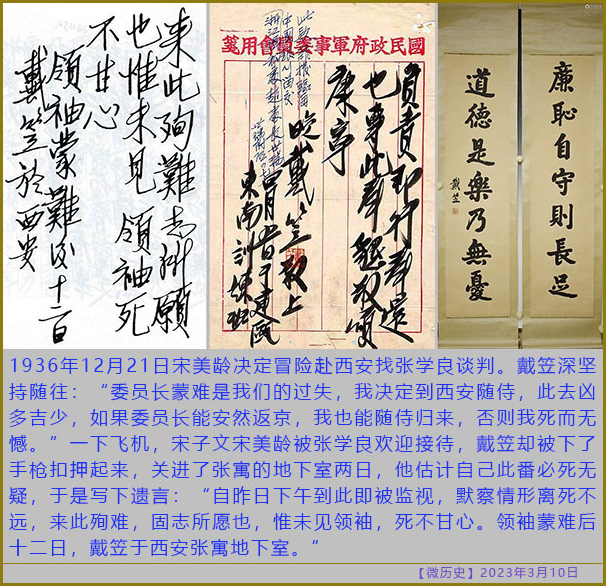 来此殉難志所願
也惟未見領袖死
不甘心
領袖蒙難後十二日
戴笠於西安
國民政府軍事委員會用箋
負責即行奉還
也專此奉懇敬頌
晚戴笠敬上
東南訓練班
廉恥自守則長足
道德是樂乃無憂
戴笠
1936年12月21日宋美龄决定冒险赴西安找张学良谈判。戴笠深坚
持随往：“委员长蒙难是我们的过失，我决定到西安随侍，此去凶
多吉少，如果委员长能安然返京，我也能随侍归来，否则我死而无
憾。”一下飞机，宋子文宋美龄被张学良欢迎接待，戴笠却被下了
手枪扣押起来，关进了张寓的地下室两日，他估计自己此番必死无
疑，于是写下遗言：“自昨日下午到此即被监视，默察情形离死不
远，来此殉难，固志所愿也，惟未见领袖，死不甘心。领袖蒙难后
十二日，戴笠于西安张寓地下室。”
【微历史】2023年3月10日